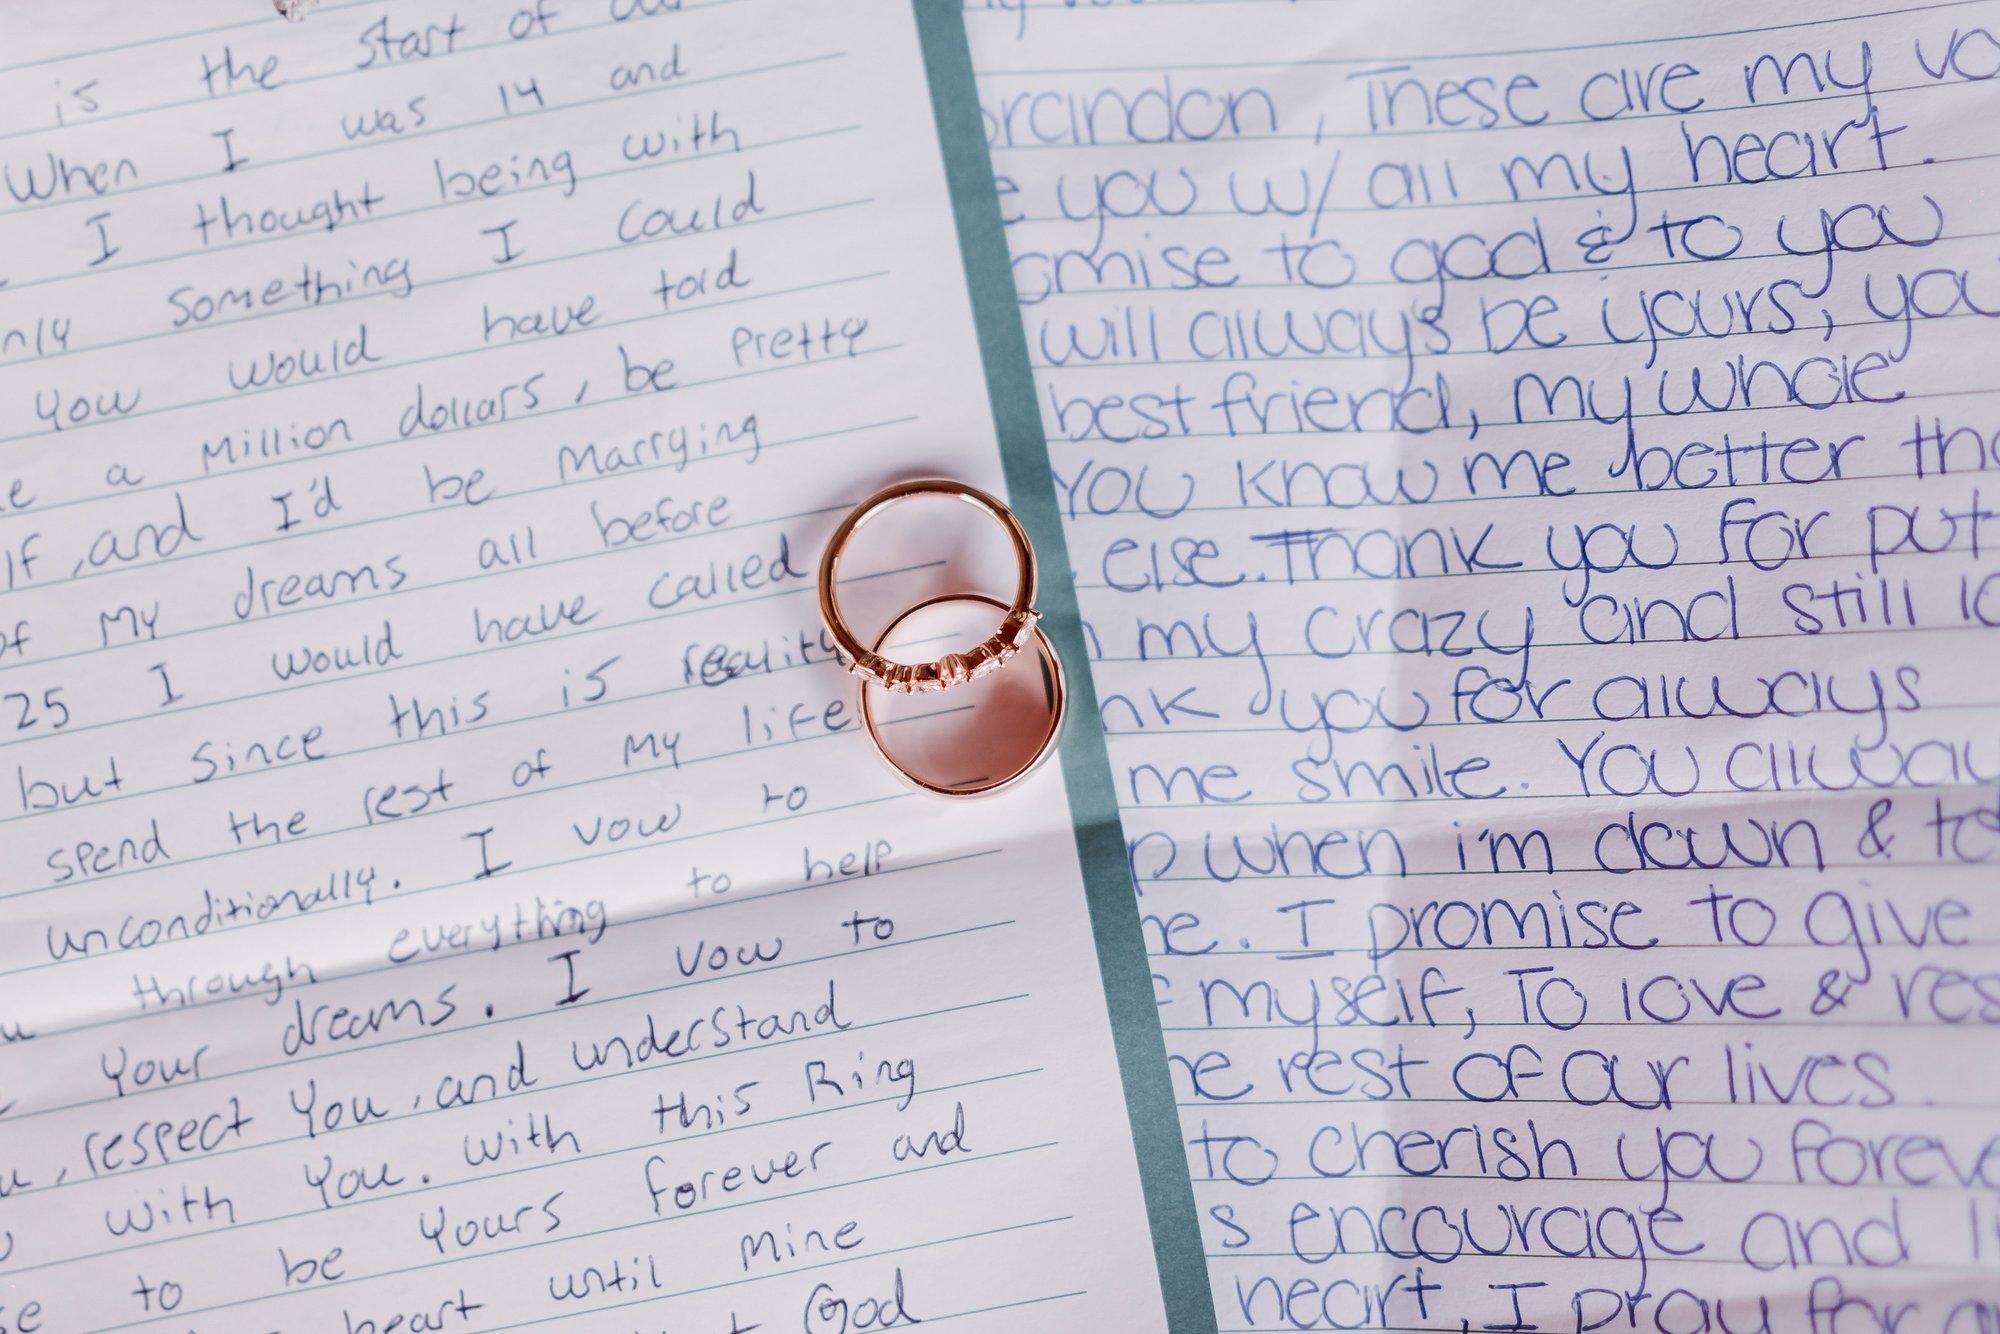 is the start of our
When I was 14 and
I thought being with
something I could
you would have told
a million dollars, be pretty
and I'd be marrying
of my dreams all before
25 I would have called
but since this is reality
spend the rest of my life
unconditionally. I vow to
through everything to help
your dreams. I vow to
respect you, and understand
with you. with this Ring
to be yours forever and
heart until mine
God
brandon, These are my vo
you w/ all my heart.
omise to god & to you
will always be yours, you
best friend, my whole
You know me better tha
else. Thank you for put
my crazy and still lo
nk you for always
me smile. You alway
p when i'm down & to
me. I promise to give
f myself, To love & res
he rest of our lives.
to cherish you foreve
s encourage and li
heart, I pray for